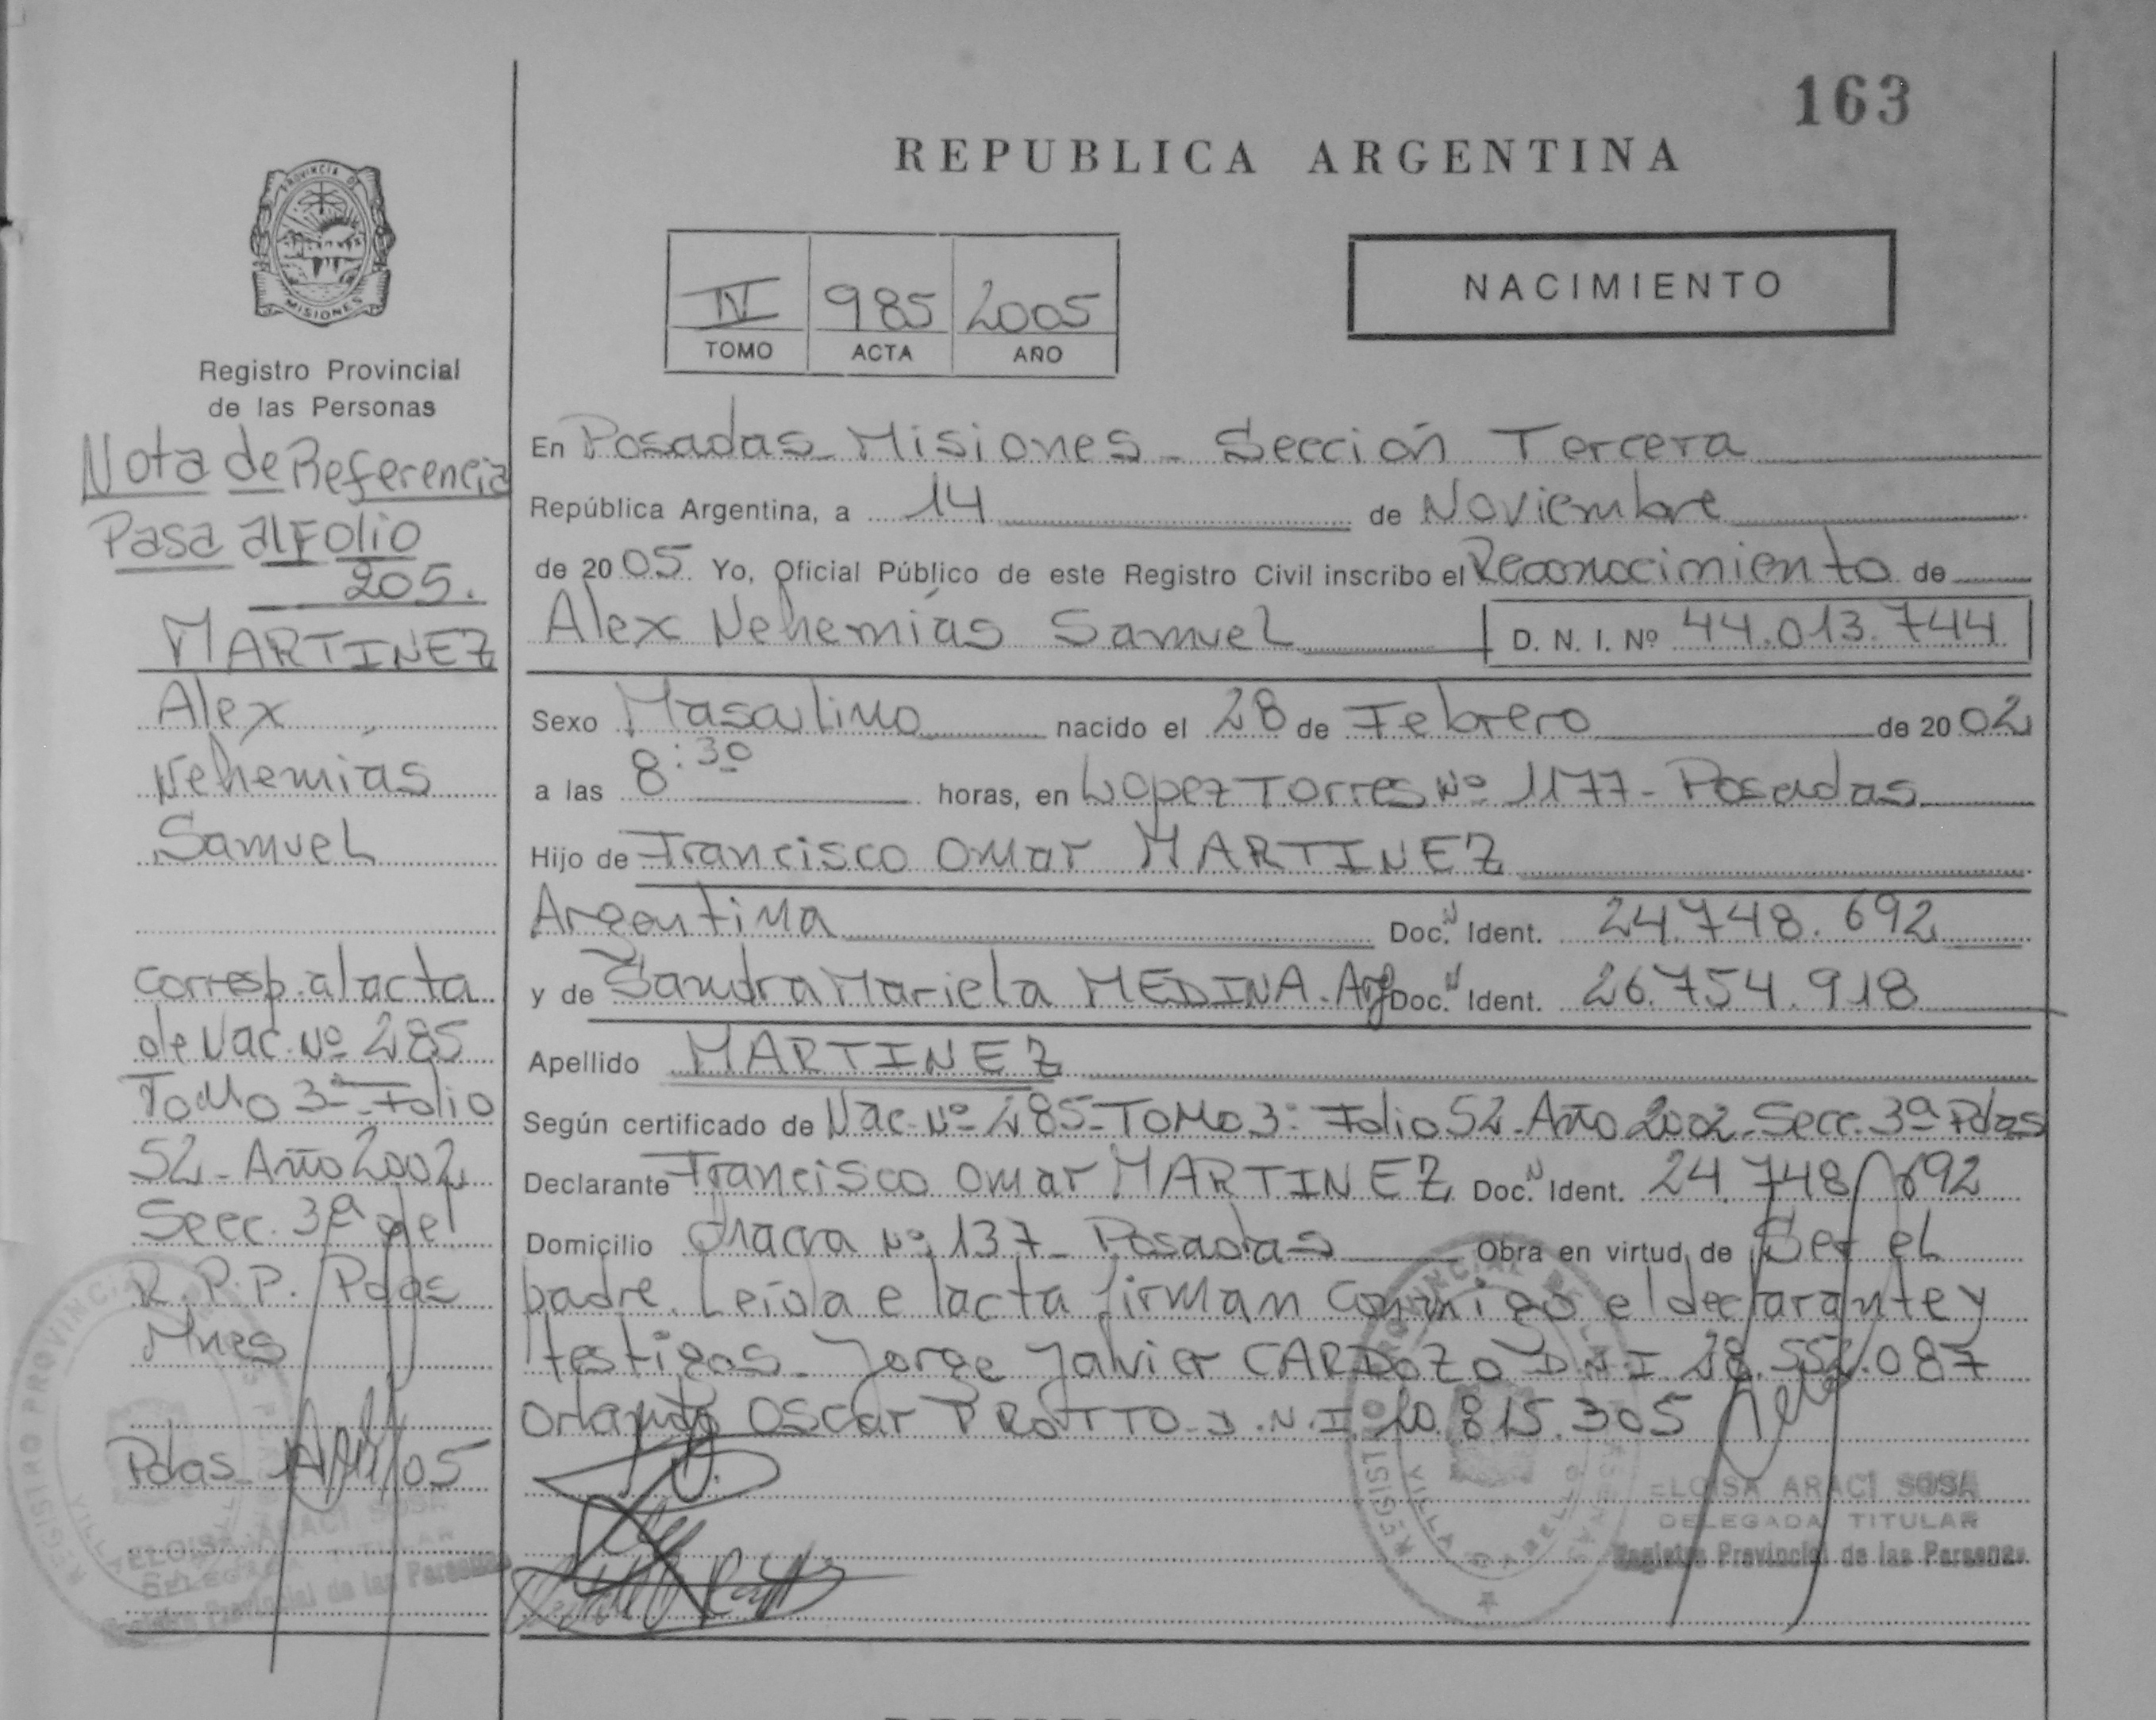 163
REPUBLICA ARGENTINA
PROVINCIA DE
MISIONES
IV 985 2005
TOMO ACTA AÑO
NACIMIENTO
Registro Provincial
de las Personas
Nota de Referencia
Pasa al Folio
205.
MARTINEZ
Alex
Nehemías
Samuel
corresp. al acta
de Nac. Nº 285
Tomo 3º Folio
52 - Año 2002
Secc. 3ª del
R.P.P. Pdas
Mnes
Pdas /05
ELOISA ARACI SOSA
DELEGADA TITULAR
Registro Provincial de las Personas
En Posadas - Misiones - Sección Tercera
República Argentina, a 14 de Noviembre
de 2005 Yo, Oficial Público de este Registro Civil inscribo el Reconocimiento de
Alex Nehemías Samuel D. N. I. Nº 44.013.744
Sexo Masculino nacido el 28 de Febrero de 2002
a las 8:30 horas, en Lopez Torres Nº 1177 - Posadas
Hijo de Francisco Omar MARTINEZ
Argentina Doc. N Ident. 24.748.692
y de Sandra Mariela MEDINA. Arg Doc. N Ident. 26.754.918
Apellido MARTINEZ
Según certificado de Nac. Nº 285 - Tomo 3º Folio 52 - Año 2002 - Secc. 3ª Pdas
Declarante Francisco Omar MARTINEZ Doc. N Ident. 24.748.692
Domicilio Chacra Nº 137 - Posadas Obra en virtud de Ser el
padre. Leída el acta firman conmigo el declarante y
testigos - Jorge Javier CARDOZO D.N.I 28.552.087
Orlando Oscar PROTTO - D.N.I. 20.815.305
REGISTRO PROVINCIAL DE LAS PERSONAS
VILLA CABELLO
ELOISA ARACI SOSA
DELEGADA TITULAR
Registro Provincial de las Personas